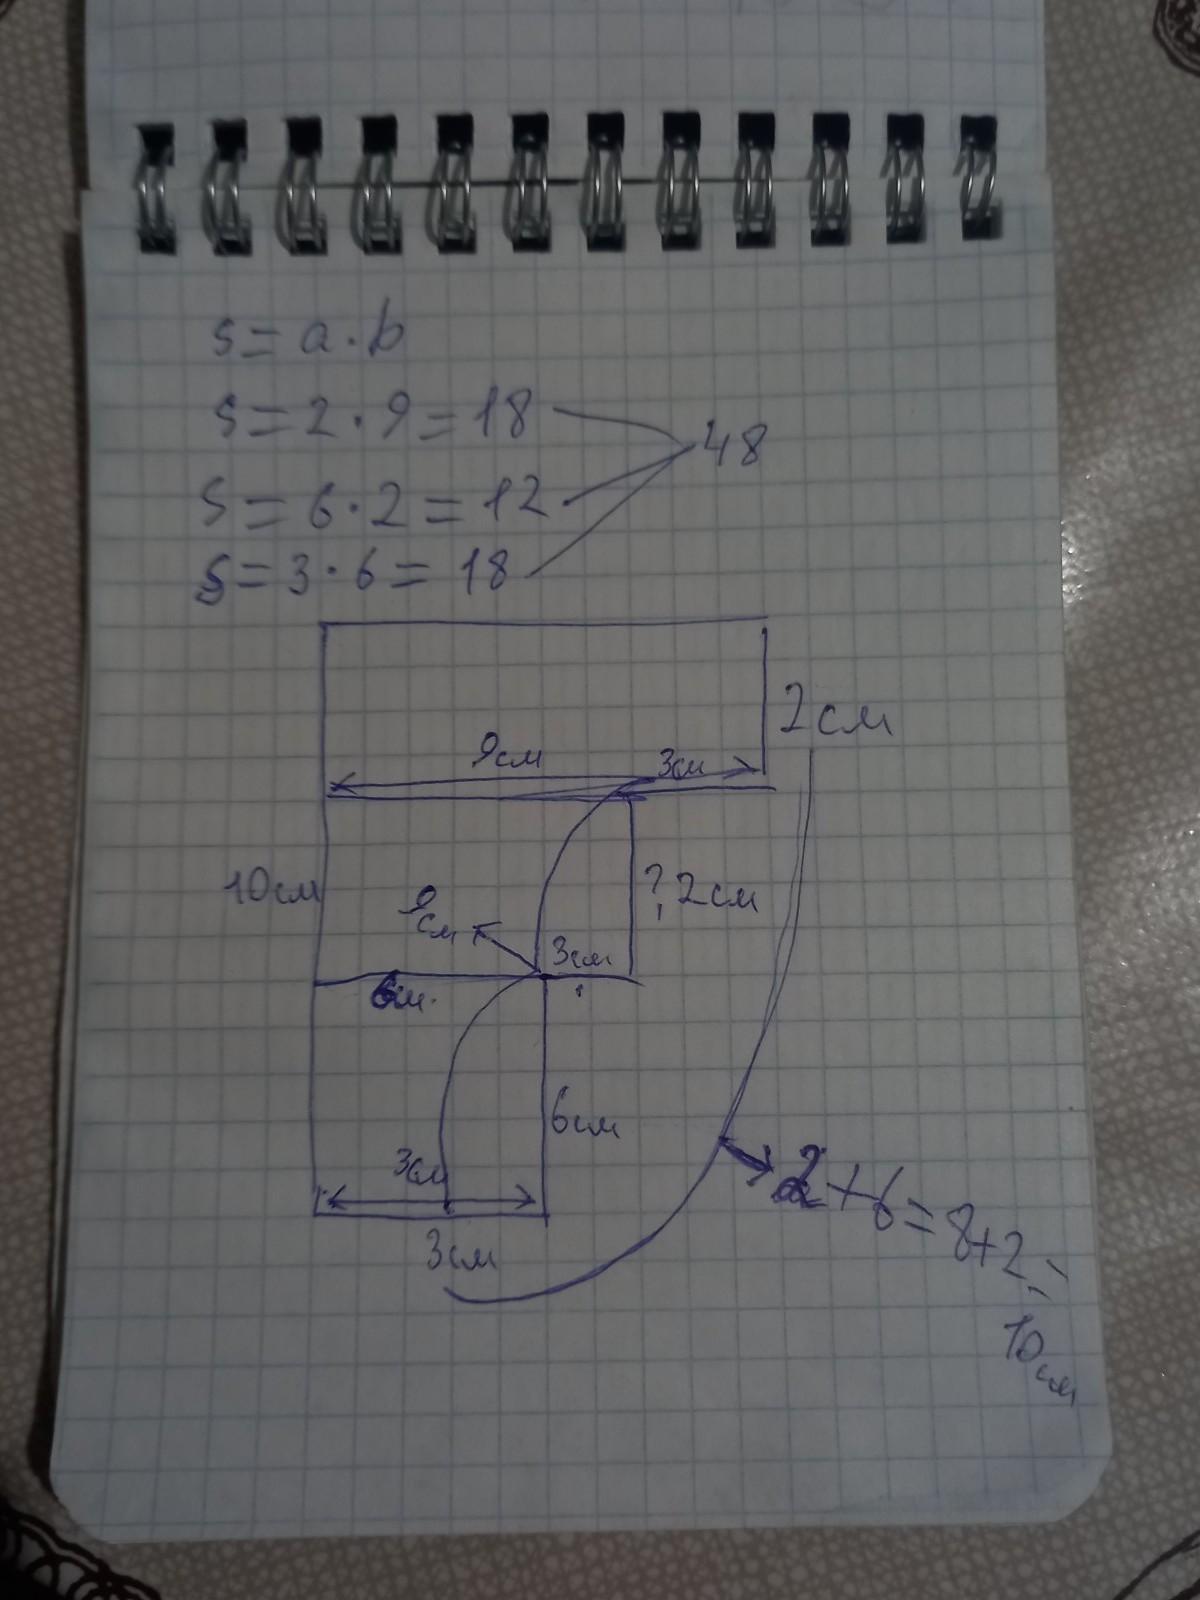 S = a · b
S = 2 · 9 = 18
48
S = 6 · 2 = 12
S = 3 · 6 = 18
2 см
9 см
3 см
10 см
? 2 см
9 см
3 см
6 см
6 см
3 см
3 см
2 + 6 = 8 + 2 =
10 см